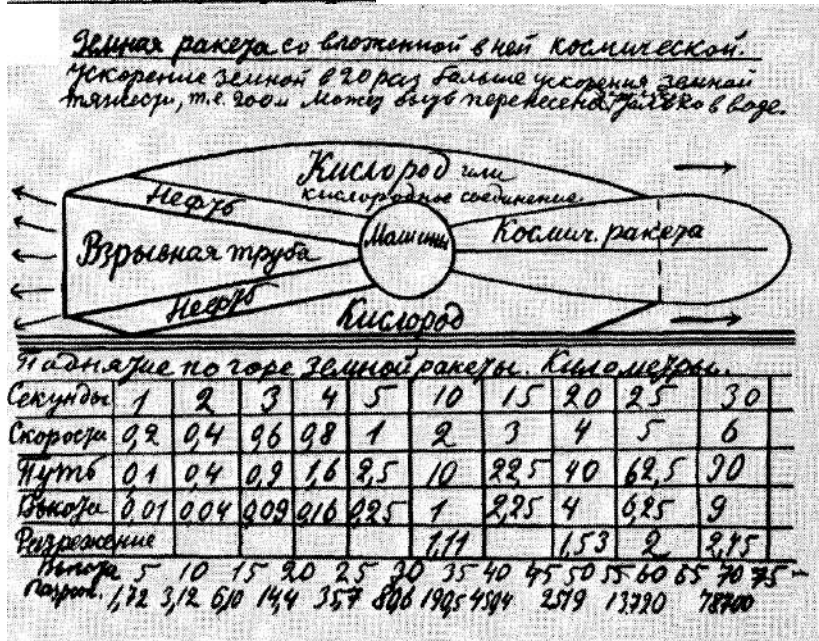 Земная ракета со вложенной в ней космической.
Ускорение земной в 20 раз больше ускорения земной
тяжести, т.е. 200 м. Может быть перенесена только в воде.
Кислород или
кислородное соединение
Нефть
Машины
Космич. ракета
Взрывная труба
Нефть
Кислород
Поднятие по горе земной ракеты. Километры.
Секунды 1 2 3 4 5 10 15 20 25 30
Скорость 0,2 0,4 0,6 0,8 1 2 3 4 5 6
Путь 0,1 0,4 0,9 1,6 2,5 10 22,5 40 62,5 90
Высота 0,01 0,04 0,09 0,16 0,25 1 2,25 4 6,25 9
Разрежение 1,11 1,53 2 2,45
Высота 5 10 15 20 25 30 35 40 45 50 55 60 65 70 75
1,72 3,12 6,10 14,4 35,7 80,6 190,5 459,4 2519 13720 78700